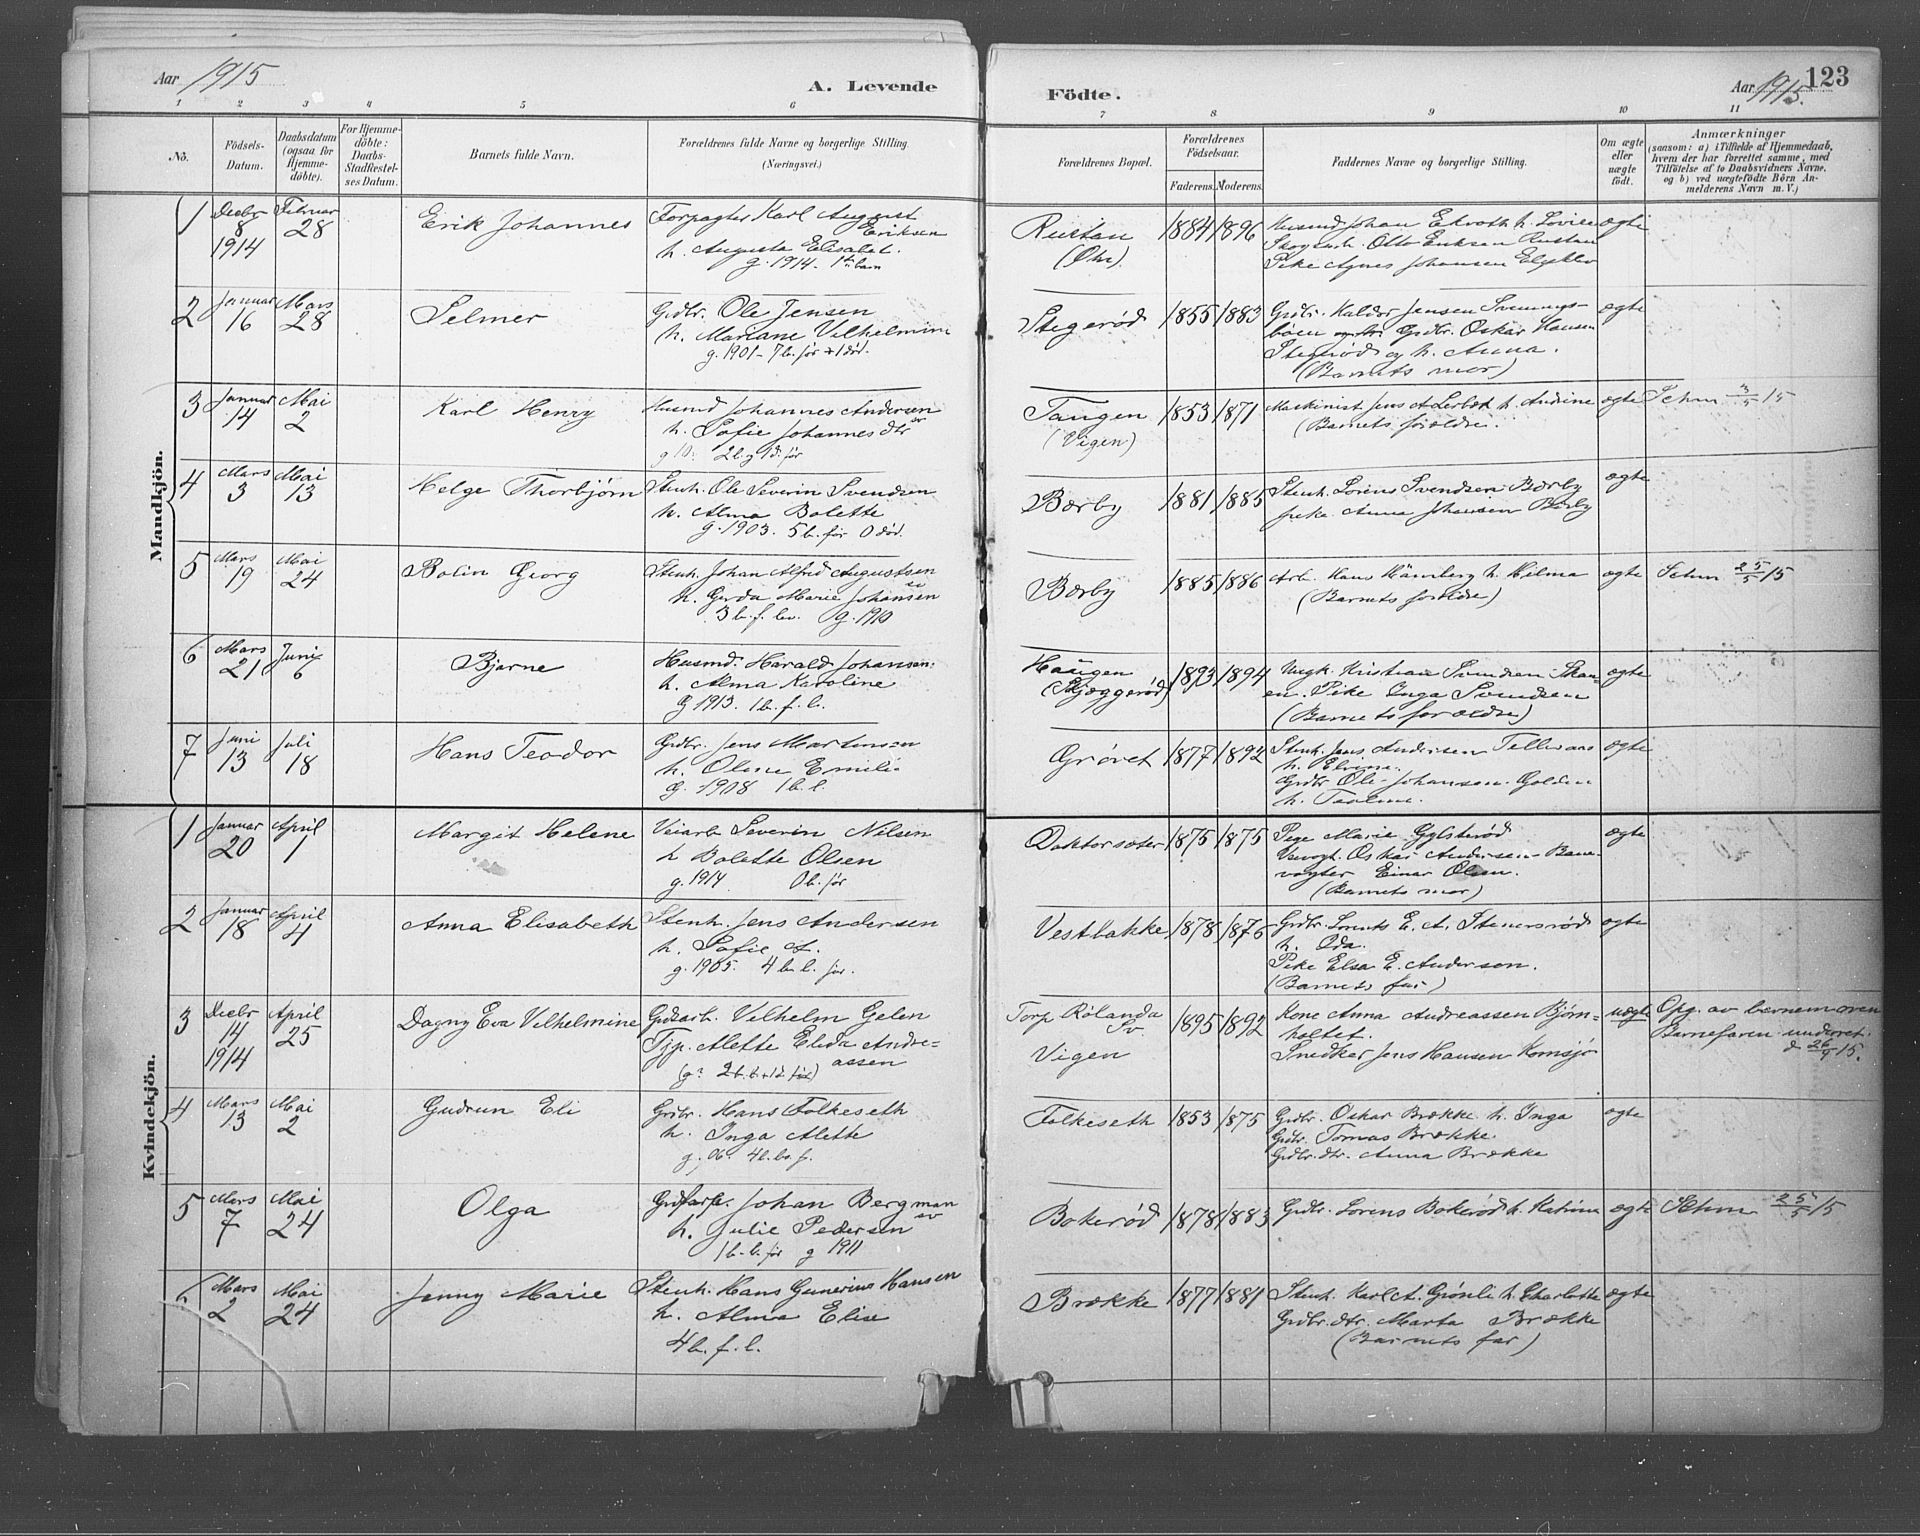 Aar 1915
A. Levende
1 2 3 4 5 6
No.
Födsels-
Datum.
Daabsdatum
(ogsaa for
Hjemme-
döbte).
For Hjemme-
döbte:
Daabs-
Stadfæstel-
ses Datum.
Barnets fulde Navn.
Forældrenes fulde Navne og borgerlige Stilling.
(Næringsvei.)
Mandkjön.
1 Decbr 8 1914 Februar 28 Erik Johannes
Forpagter Karl August
Eriksen
h. Augusta Elisabet.
g. 1914 - 1ste barn
2 Januar 16 Mars 28 Selmer
Grdbr. Ole Jensen
h. Mariane Vilhelmine
g. 1901 - 7 b. før + 1 død.
3 Januar 14 Mai 2 Karl Henry
Husmd Johannes Andersen
h. Sofie Johannesdtr
4 Mars 3 Mai 13 Helge Thorbjørn
Stenh. Ole Severin Svendsen
h. Alma Bolette
g. 1903. 5 b. før 0 død.
5 Mars 19 Mai 24 Bolin Georg
Stenh. Johan Alfred Augustsen
h. Gerda Marie Johansen
3 b. f. lev. g. 1910
6 Mars 21 Juni 6 Bjarne
Husmd. Harald Johansen
h. Alma Karoline
g 1913. 1 b. f. l.
7 Juni 13 Juli 18 Hans Teodor
Grdbr. Jens Martinsen
h. Oline Emilie
g. 1908 1 b. l.
Kvindekjön.
1 Januar 20 April 1 Margit Helene
Veiarb Severin Nilsen
h Bolette Olsen
g. 1914 0 b. før
2 Januar 18 April 4 Anna Elisabeth
Stenh. Jens Andersen
h. Sofie A.
g. 1905. 4 b. l. før.
3 Decbr 14 1914 April 25 Dagny Eva Vilhelmine
Grdsarb. Vilhelm Gelen
Tjp. Alette Elida Andre=
assen
4 Mars 13 Mai 2 Gudrun Eli
Grdbr. Hans Folkeseth
h. Inga Alette
g. 06. 4 b. lev. f.
5 Mars 7 Mai 24 Olga
Grdsarb. Johan Bergman
h. Julie Pedersen
1 b. l. før g 1911
6 Mars 2 Mai 24 Jenny Marie
Stenh. Hans Gunerius Hansen
h. Alma Elise
4 b. f. l.
Födte.
Aar 1915. 123
7 8 9 10 11
Forældrenes Bopæl.
Forældrenes
Födselsaar.
Faderens. Moderens.
Faddernes Navne og borgerlige Stilling.
Om ægte
eller
uægte
födt.
Anmærkninger
(saasom: a) i Tilfælde af Hjemmedaab,
hvem der har forrettet samme, med
Tilföielse af to Daabsvidners Navne,
og b) ved uægtefödte Börn An-
melderens Navn m. V.)
Rustan
(Øhr).
1884 1896
Husmd Johan Ekroth h. Lovise
Skogsarb. Otto Eriksen Rustan
Pike Agnes Johansen
ægte
Stegerød
1855 1883
Grdbr. Haldor Jensen Svennings-
bøen Grdbr. Oskar Hansen
Stegerød og h. Anna.
(Barnets mor)
ægte
Tangen
(Vigen)
1853 1871
Maskinist Jens A. h. Andine
(Barnets forældre.
ægte
Schm 3/5 15
Bærby
1881 1885
Stenh. Lorens Svendsen Bærby
pike Anna Johansen Bærby
ægte
Bærby
1885 1886
Arb. Hans Hamberg h. Hilma
(Barnets forældre)
ægte
Schm 25/5 15
Haugen
(Skjæggerød)
1893 1894
Ungk. Kristian Svendsen Skan-
en. Pike Inga Svendsen
(Barnets forældre)
ægte
Grøvet
1877 1892
Stenh. Jens Andersen Tellusaas
h. Elvina.
Grdbr Ole Johansen Golden
h. Teoline.
ægte
Doktorsæter
1875 1875
Pige Marie Gylsterød
Oskar Andersen - Bane-
vogter Einar Olsen.
(Barnets mor)
ægte
Vestbakke
1878 1876
Grdbr. Lorents E. A. Stenersrød
h. Oda.
Pike Elsa E. Andersen.
(Barnets far)
ægte
Torp Rølanda
Sv.
Vigen
1895 1892
Kone Anna Andreassen Bjørn-
holtet.
Snedker Jens Hansen Kornsjø
uægte
Opg. av barnemoren
Barnefaren underret.
d 26/9 15.
Folkeseth
1853 1875
Grdbr. Oskar Brække h. Inga
Grdbr. Tomas Brække.
Grdbr. dtr. Anna Brække
ægte
Bokerød
1878 1883
Grdbr. Lorens Bokerød h. Katrine
ægte
Schm 25/5 15
Brække
1877 1881
Stenh. Karl A. Grønli h. Charlotte
Grdbr. dtr. Marta Brække
(Barnets far)
ægte